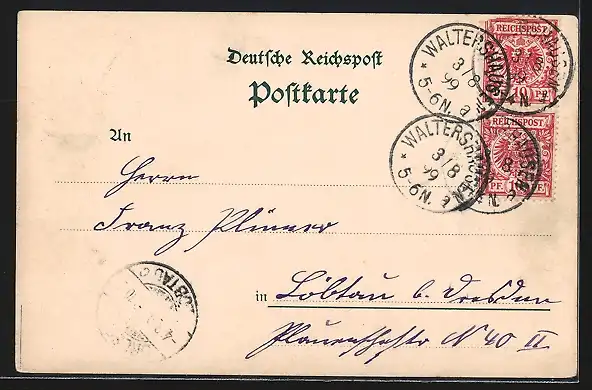 Deutsche Reichspost
Postkarte
REICHSPOST
10 PF.
REICHSPOST
PF. 10 PF.
* WALTERSHAUSEN *
3/8
99
5-6N. a
* WALTERSHAUSEN *
3/8
99
5-6N. a
An
Herrn
Franz Plümer
in Löbtau b. Dresden
Plauenschestr N 40 II
LÖBTAU